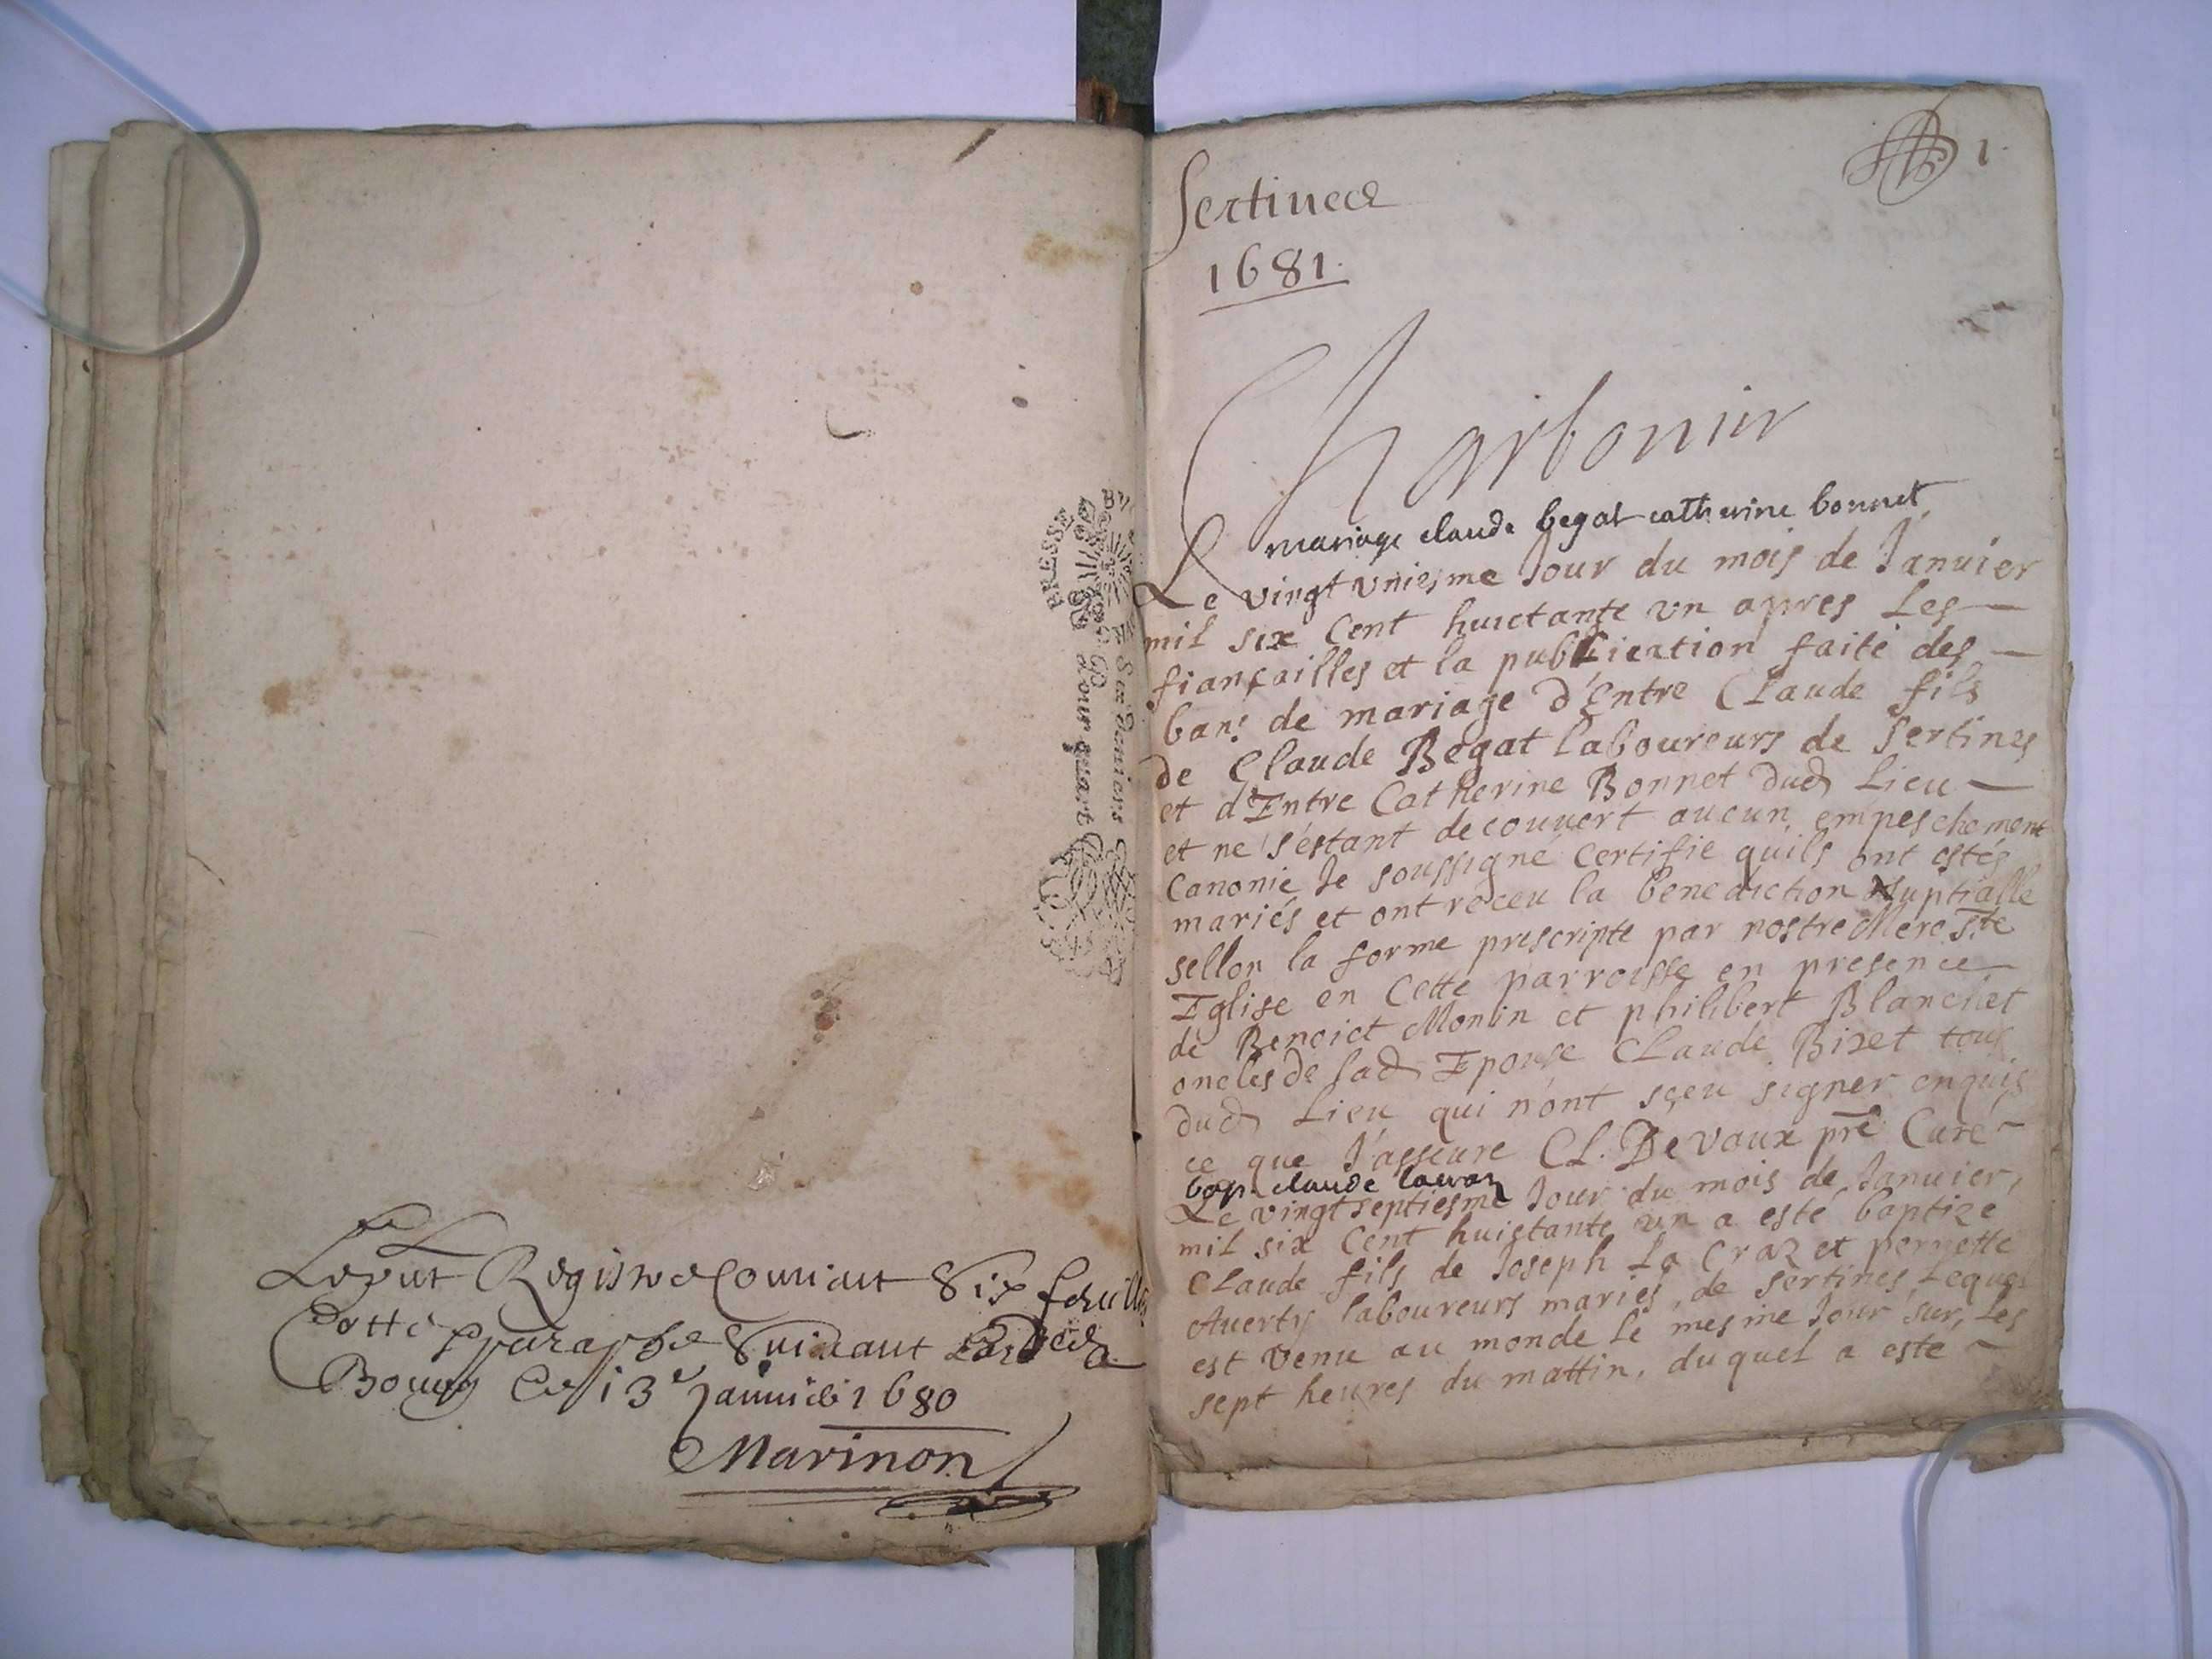 BRESSE
Six deniers
Pour quart
Le pnt Registre Contient Six feuilles
Cotté Et paraphé Suivant
Bourg Ce 13e Janvier 1680
Marinon
1.
Sertines
1681.
Charbonier
mariage claude begat catherine bonnet
Le vingt uniesme Jour du mois de Januier
mil six Cent huictante vn apres Les
fiançailles et la publication faite des
bans de mariage d'Entre Claude fils
de Claude Begat laboureurs de Sertines
et d'Entre Catherine Bonnet dud Lieu
et ne s'estant decouuert aucun empeschement
Canonic Je soussigné Certifie quils ont estés
mariés et ont receu la benediction Nuptialle
sellon la forme prescripte par nostre Mere Ste
Eglise en Cette parroisse en presence
de Benoict Monin et philibert Blanchet
oncles de lad Epouse Claude Bizet tous
dud Lieu qui n'ont sçeu signer enquis
ce que J'asseure CL. De Vaux pre Curé
bap. claude lacraz
Le vingt septiesme Jour du mois de Januier,
mil six Cent huictante vn a esté baptize
Claude fils de Joseph La Craz et pernette
Auerty laboureurs mariés, de Sertines Lequel
est venu au monde le mesme Jour sur, les
sept heures du mattin, duquel a esté